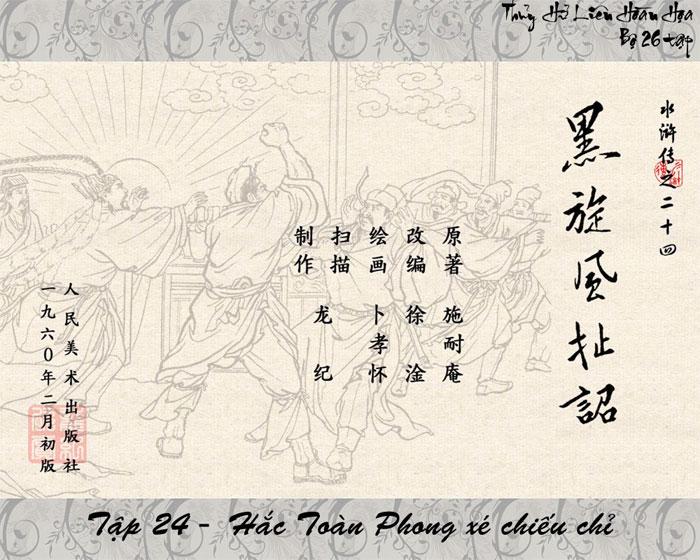 Thủy Hử Liên Hoàn Họa
Bộ 26 tập
水浒传之二十四
黑旋风扯詔
原著 施耐庵
改编 徐淦
绘画 卜孝怀
扫描 龙纪
制作
人民美术出版社
一九六〇年二月初版
Tập 24 - Hắc Toàn Phong xé chiếu chỉ